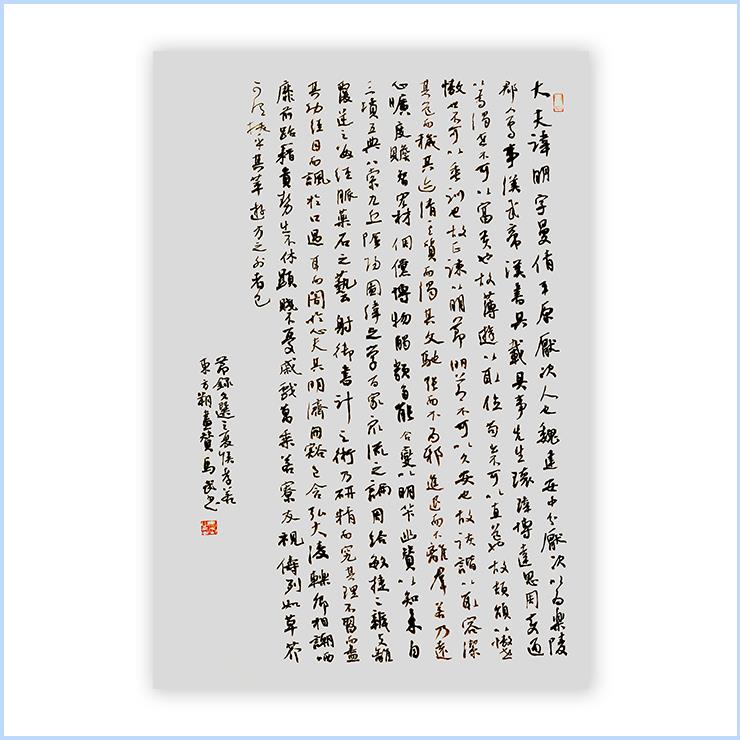 大夫諱朔字曼倩平原厭次人也魏建安中分厭次以為樂陵
郡人焉事漢武帝漢書具載其事先生瓌瑋博達思周變通
以為濁世不可以富貴也故薄遊以取位苟出不可以直道也故頡頏以傲世
傲世不可以垂訓也故正諫以明節明節不可以久安也故詼諧以取容潔
其道而穢其迹清其質而濁其文弛張而不為邪進退而不離群若乃遠
心曠度贍智宏材倜儻博物觸類多能合變以明筭幽贊以知來自
三墳五典八索九丘陰陽圖緯之學百家衆流之論周給敏捷之辨支離
覆逆之數經脈藥石之藝射御書計之術乃研精而究其理不習而盡
其功經目而諷於口過耳而闇於心夫其明濟開豁包含弘大凌轢卿相謿哂
靡前跆籍貴勢出不休顯賤不憂戚戲萬乘若寮友視儔列如草芥
可謂拔乎其萃遊方之外者已
節録文選之夏侯孝若
東方朔畫贊馬